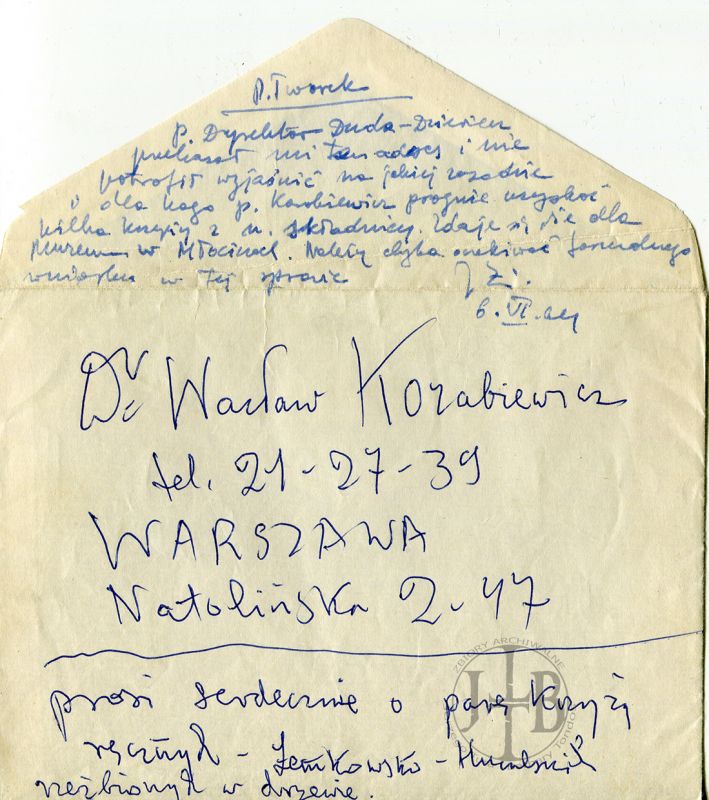 P. Tworek
P. Dyrektor Duda-Dziewierz
przekazał mi ten adres i nie
potrafił wyjaśnić na jakiej zasadzie
i dla kogo p. Korabiewicz pragnie uzyskać
kilka krzyży z n. składnicy. Zdaje się nie dla
Muzeum w Młocinach. Należy chyba oczekiwać formalnego
wniosku w tej sprawie
6. VI.
Dr Wacław Korabiewicz
tel. 21-27-39
WARSZAWA
Natolińska 2-47
prosi serdecznie o parę krzyży
ręcznych - Łemkowsko-Huculskich
rzeźbionych w drzewie.
ZBIORY ARCHIWALNE
JLB